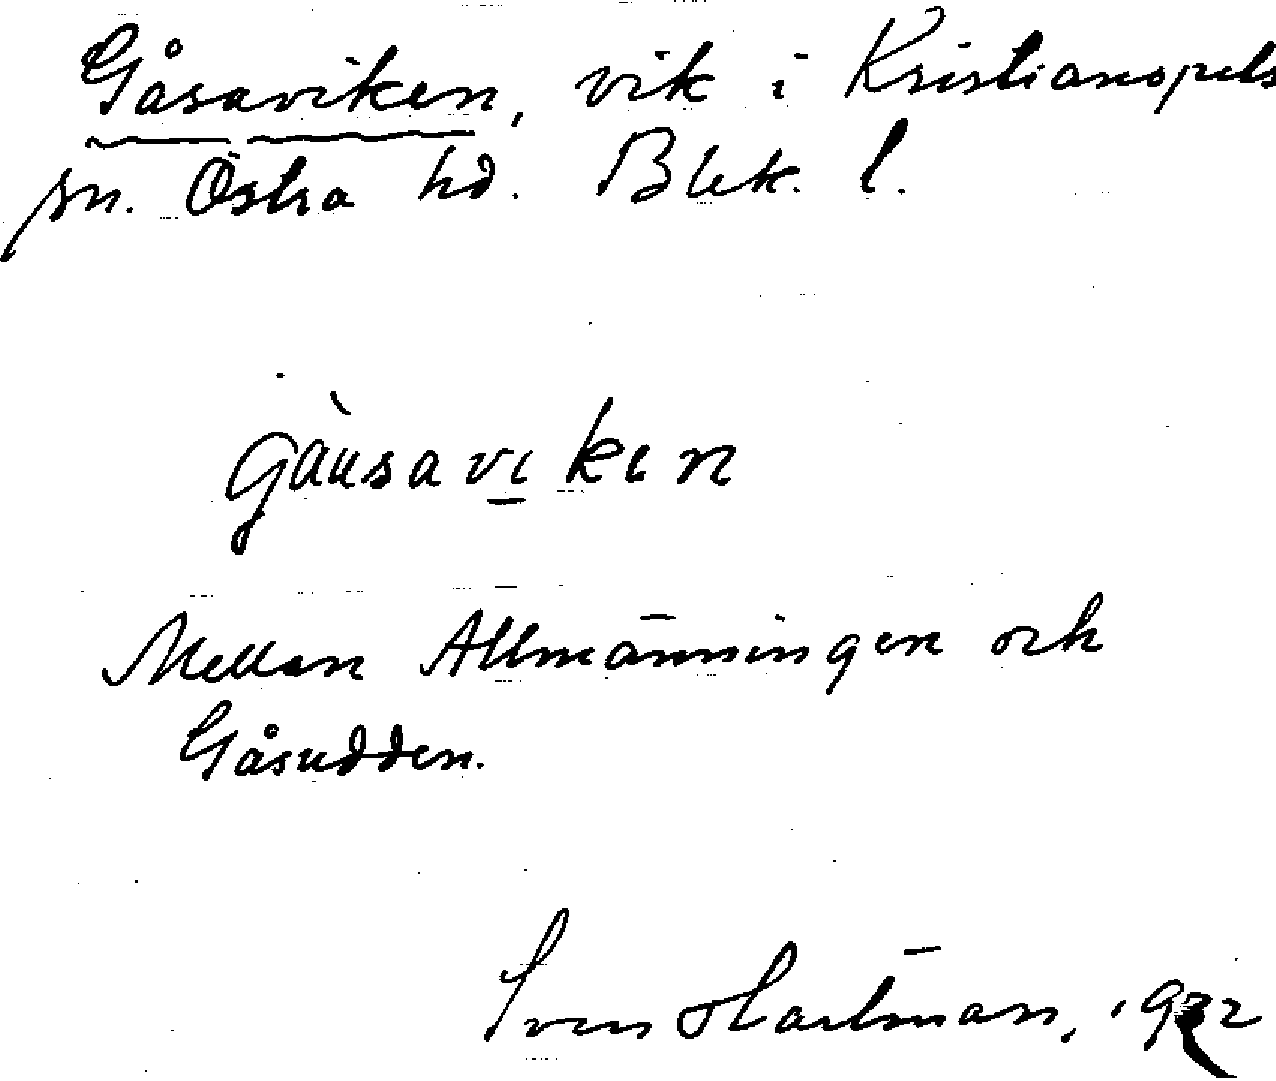 Gåsaviken, vik i Kristianopels
sn. Östra hd. Blek. l.
gàusavikɩn
Mellan Allmänningen och
Gåsudden.
Sven Hartman,